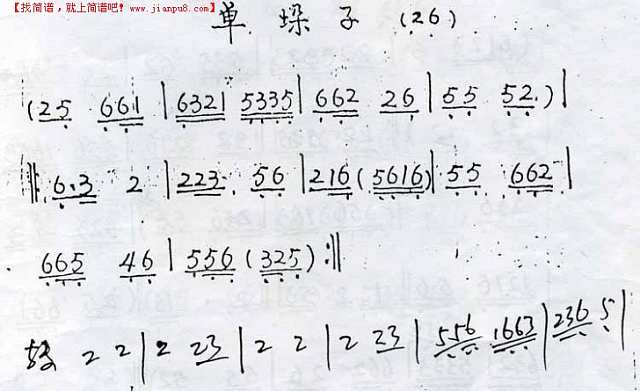 【找简谱，就上简谱吧! www.jianpu8.com】
单 垛 子 (26)
(25 661 | 6321 5335 | 662 26 | 55 52.) |
‖: 6.3 2 | 223 56 | 216 (5616) | 55 662 |
665 46 | 556 (325) :‖
2 2 | 2 23 | 2 2 | 2 23 | 556 1663 | 236 5 |